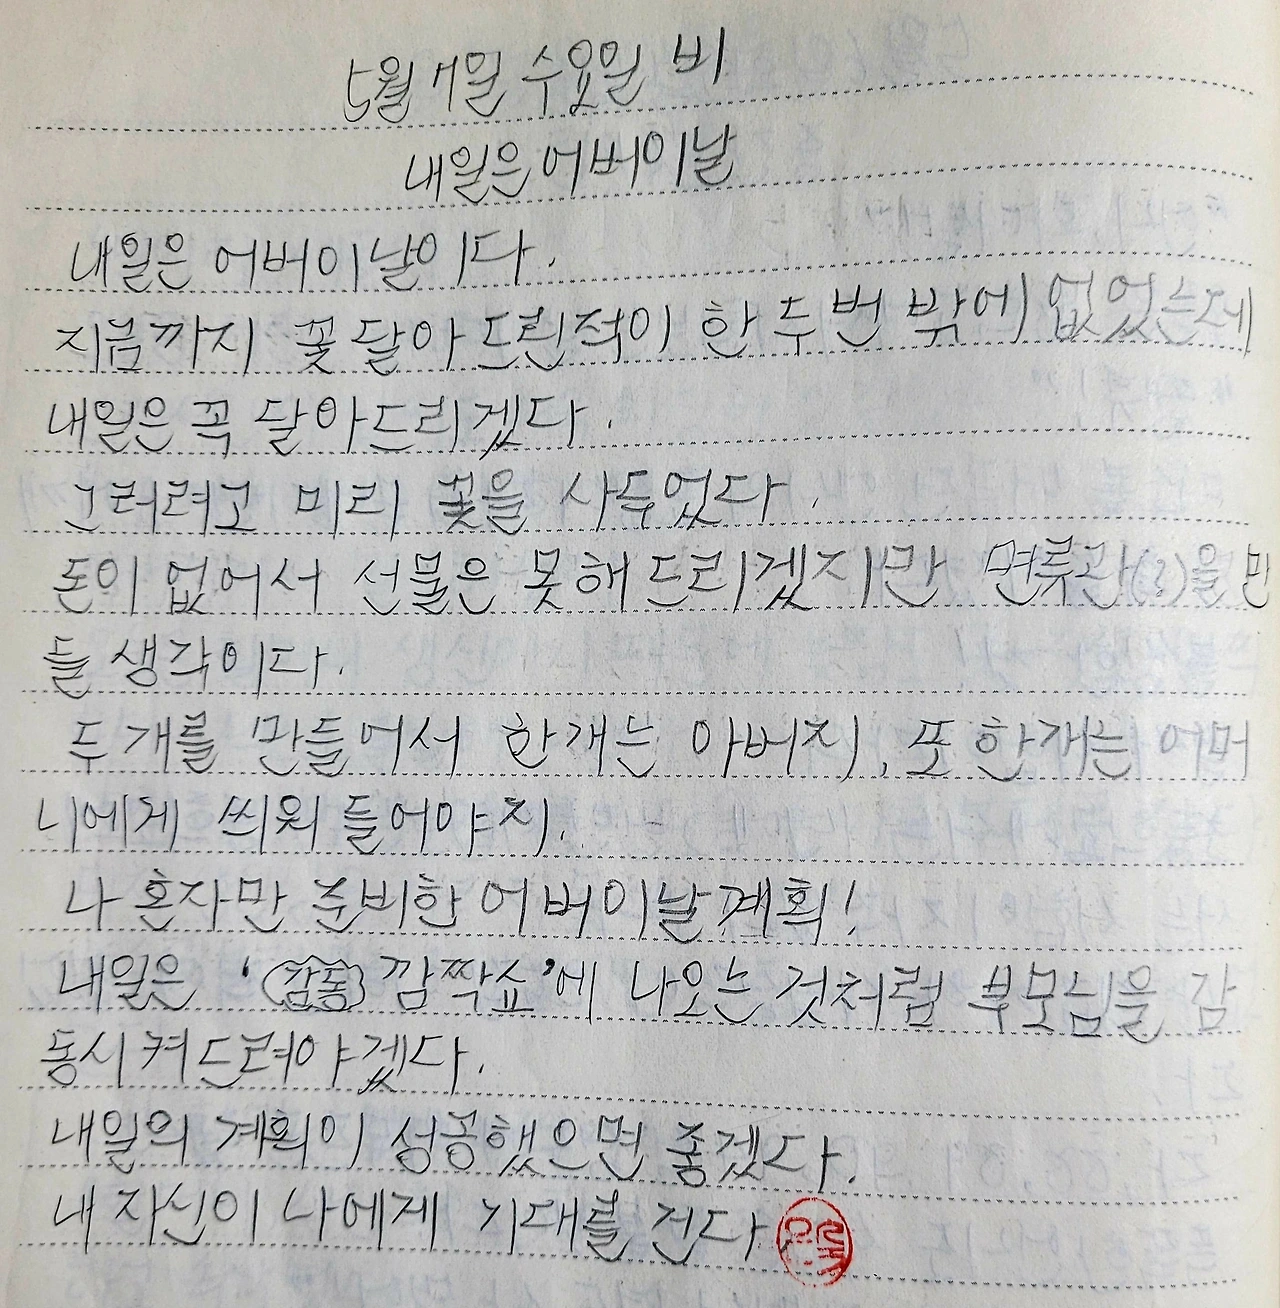 5월 7일 수요일 비
내일은 어버이날
내일은 어버이날이다.
지금까지 꽃 달아 드린적이 한 두 번 밖에 없었는데
내일은 꼭 달아드리겠다.
그러려고 미리 꽃을 사두었다.
돈이 없어서 선물은 못해드리겠지만 면류관(?)을 만
들 생각이다.
두 개를 만들어서 한개는 아버지, 또 한개는 어머
니에게 씌워 들어야지.
나 혼자만 준비한 어버이날 계획!
내일은 '감동 깜짝쇼'에 나오는 것처럼 부모님을 감
동시켜드려야겠다.
내일의 계획이 성공했으면 좋겠다.
내 자신이 나에게 기대를 건다